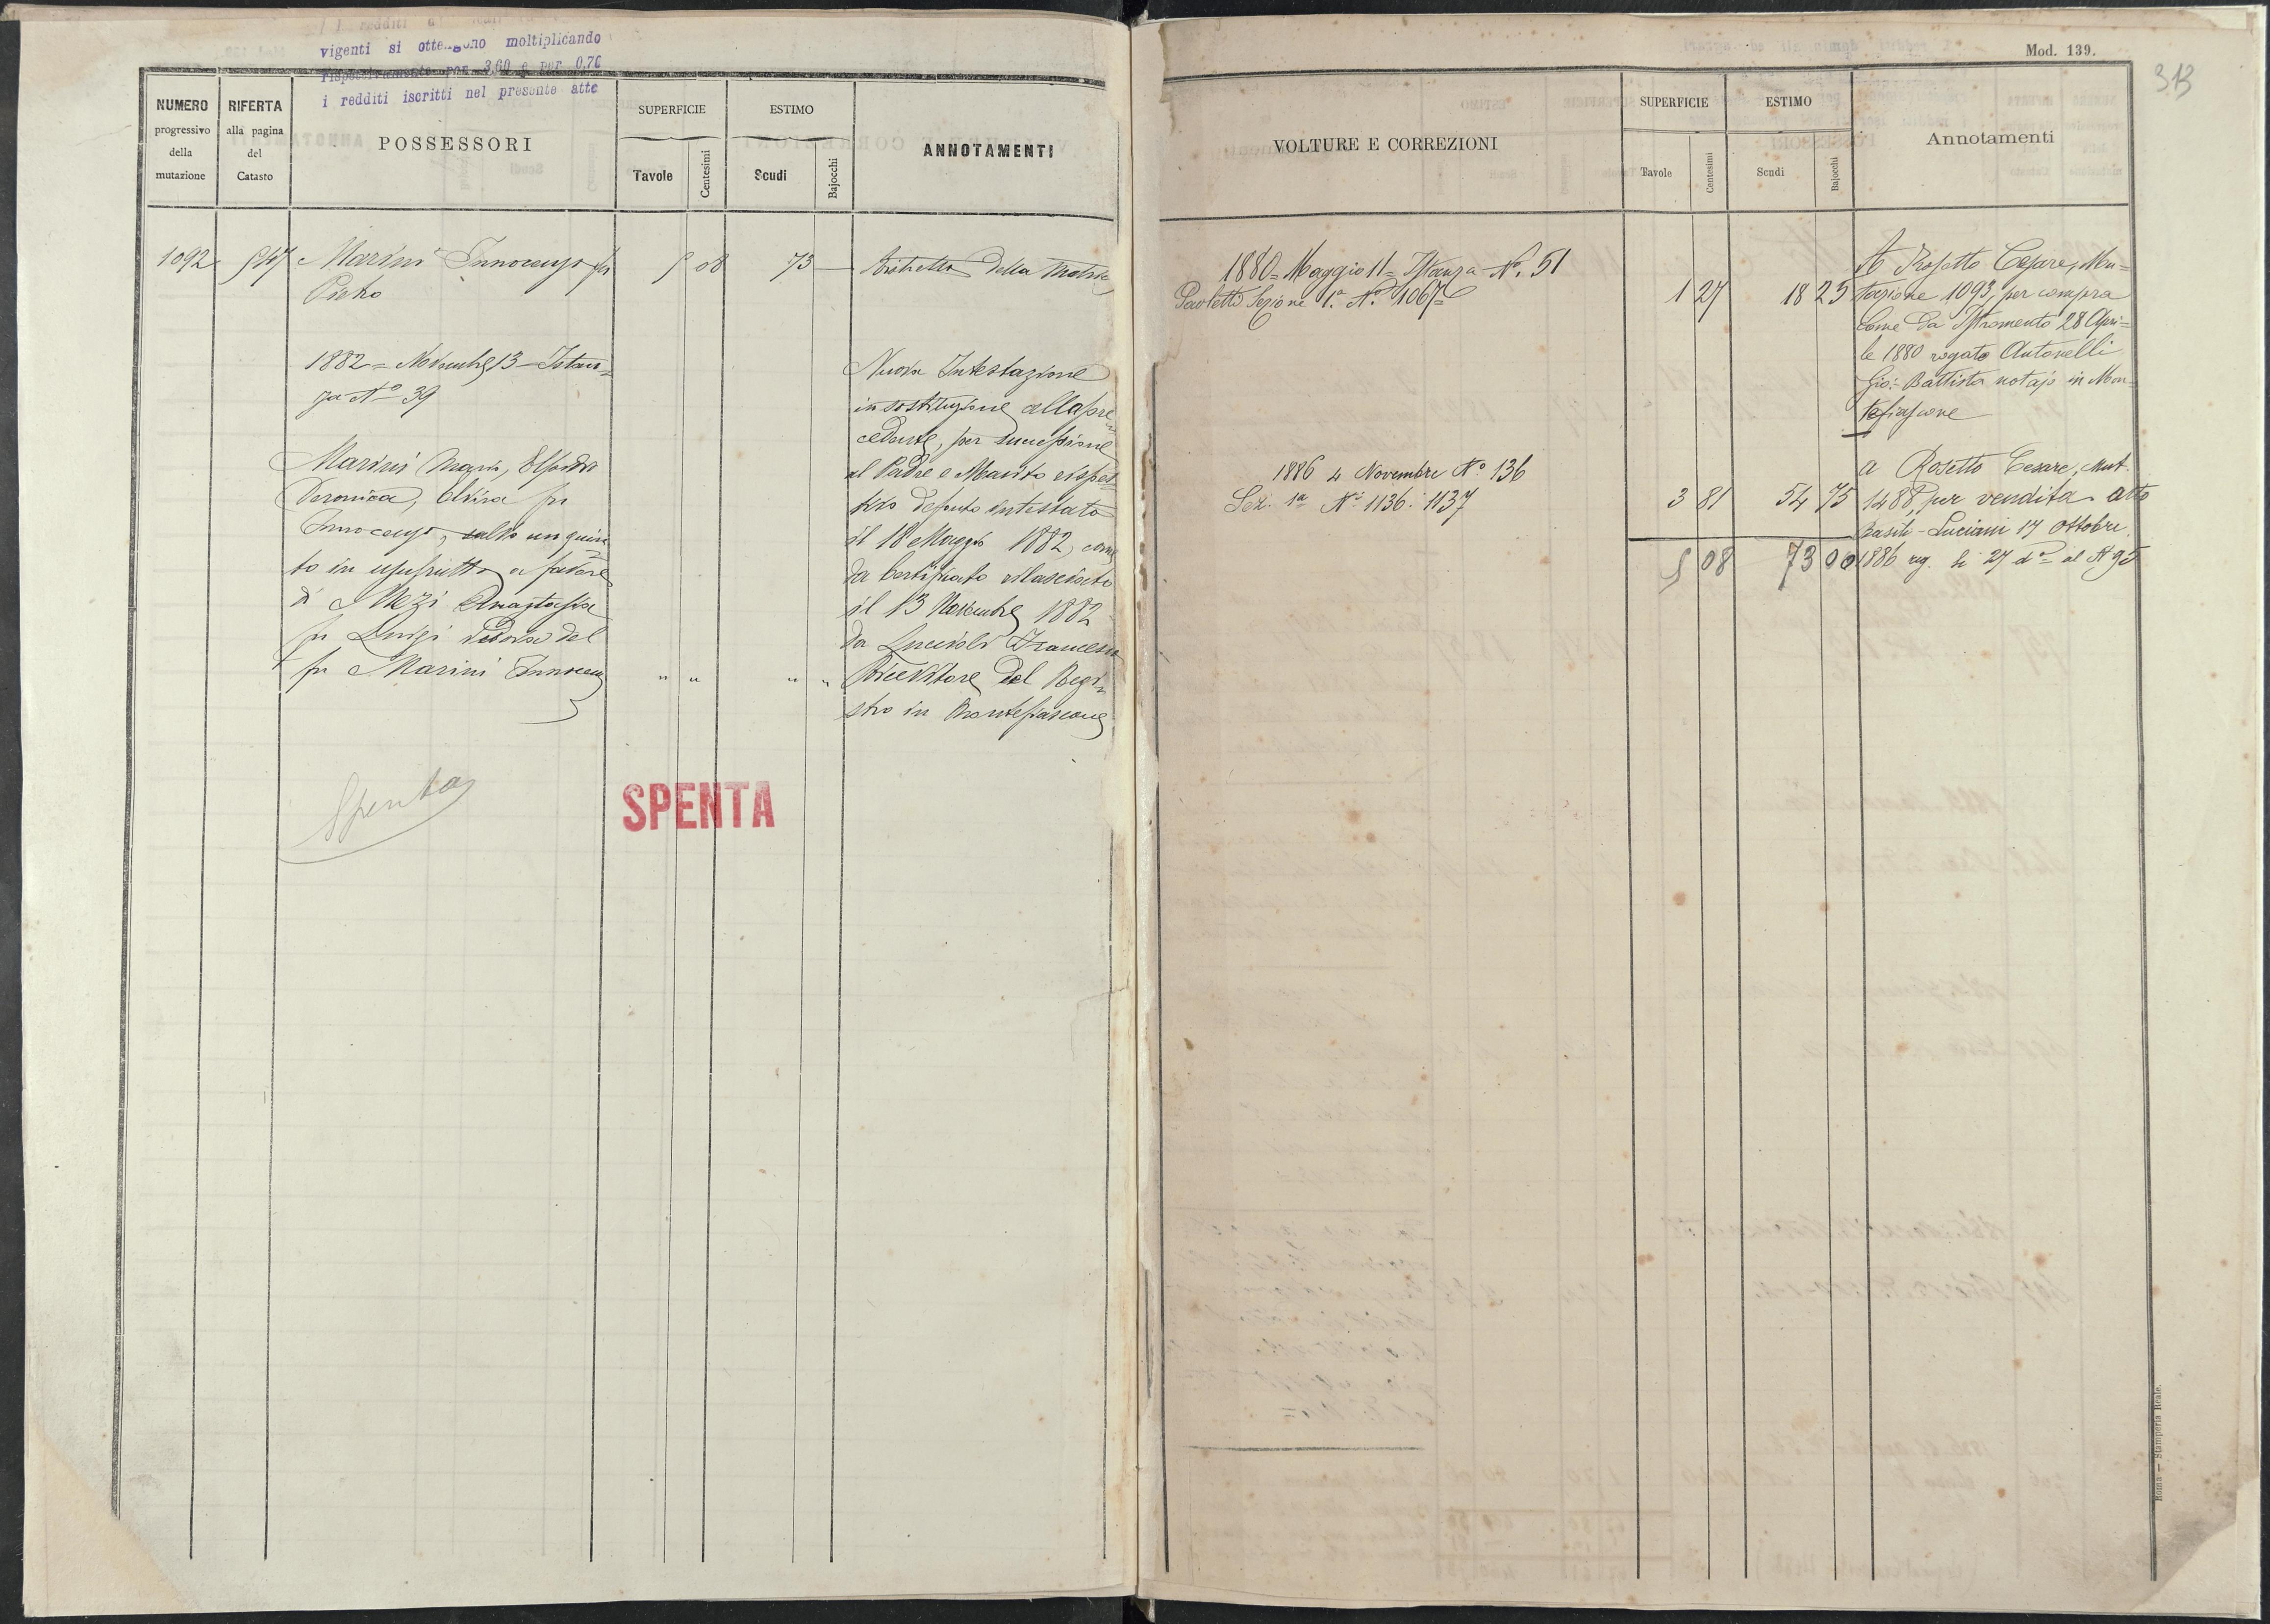 vigenti si ottengono moltiplicando
rispettivamente per 3,60 e per 0,76
i redditi iscritti nel presente atto
NUMERO
progressivo
della
mutazione
RIFERTA
alla pagina
del
Catasto
POSSESSORI
SUPERFICIE
Tavole
Centesimi
ESTIMO
Scudi
Bajocchi
ANNOTAMENTI
1092 Marini Innocenzo fu 5 08 73 — Ristretto della
Pietro
1882 = Novembre 13 = Istan=
za No 39
Marini Maria,
Veronica, Elvira fu
Innocenzo, salvo un quin=
to in usufrutto a favore
di Mezi Anastasia
fu Luigi vedova del
fu Marini Innocenzo " " " "
Nuova Intestazione
in sostituzione alla pre=
cedente, per successione
al Padre e Marito rispet=
tivo defunto intestato
il 18 Maggio 1882, come
da Certificato rilasciato
il 13 Novembre 1882
da Luccioli Francesco
Ricevitore del Regi=
stro in Montefiascone
Spenta
SPENTA
Mod. 139.
313
VOLTURE E CORREZIONI
SUPERFICIE
Tavole
Centesimi
ESTIMO
Scudi
Bajocchi
Annotamenti
1880 = Maggio 11 = Istanza No. 51
Paoletti Sezione 1.a No. 1067 1 27 18 25
A Rosetto Cesare, Mu=
tazione 1093, per compra
come da Istromento 28 Apri=
le 1880 rogato Antonelli
Gio: Battista notajo in Mon=
tefiascone
1886 4 Novembre No 136
Sez. 1a Ni 1136. 1137 3 81 54 75
a Rosetto Cesare, Mut.
1488, per vendita atto
Basili-Luciani 17 Ottobre
5 08 73 00 1886 reg. li 27 do al N 95
Roma — Stamperia Reale.